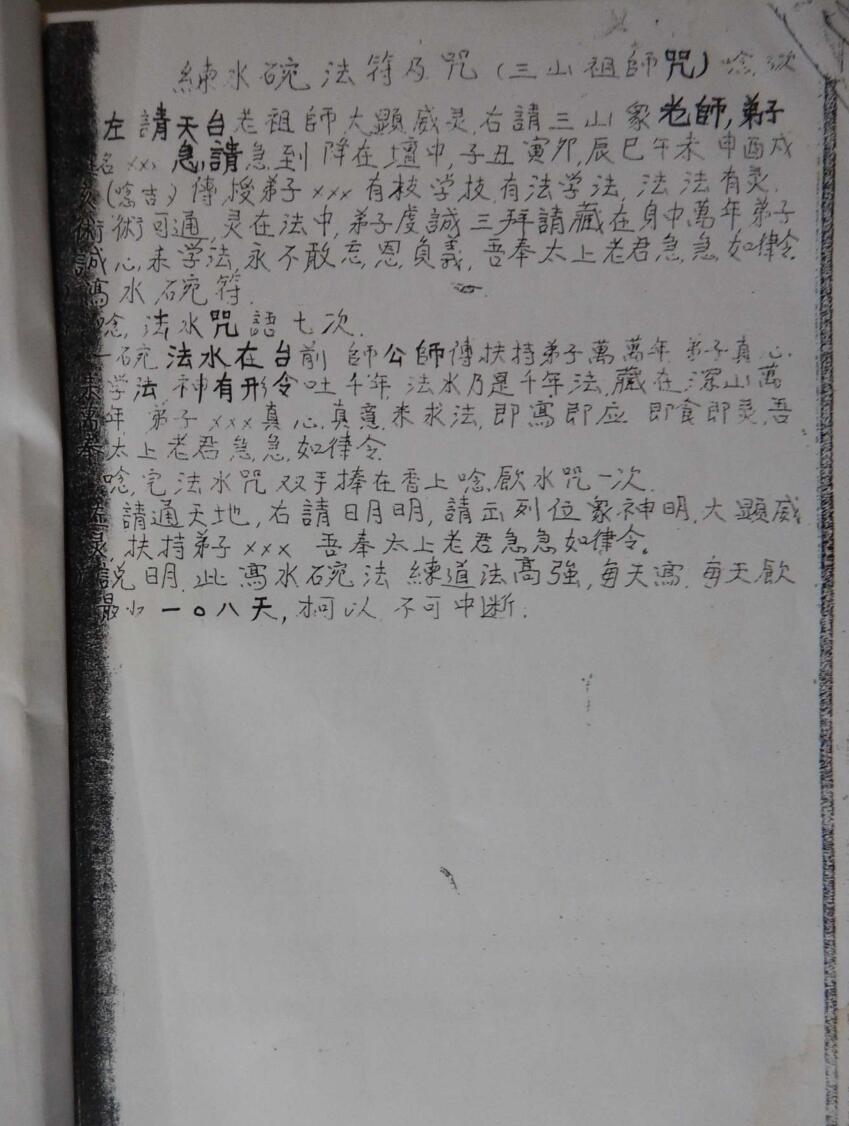 練水碗法符及咒（三山祖師咒）唸
左請天台老祖師大顯威灵,右請三山眾老師,弟子
名xxx急請急到降在壇中,子丑寅卯,辰巳午未申酉戍
(唸吉)傳,授弟子xxx有技学技,有法学法,法法有灵.
術術可通,灵在法中,弟子虔誠三拜請藏在身中萬年,弟子
誠心,来学法,永不敢忘,恩,負義,吾奉太上老君急,急,如律令
寫水碗符.
唸,法水咒語七次.
一碗法水在台前師公師傳扶持弟子萬萬年,弟子真心.
来学法,神有形令吐千年,法水乃是千年法,藏在深山萬
萬年,弟子xxx真心,真意,来求法,即寫即应即食即灵,吾
奉太上老君急,急,如律令
唸,完法水咒双手捧在香上唸飲水咒一次.
請通天地,右請日月明,請出列位眾神明,大顯威
灵,扶持弟子xxx吾奉太上老君急急如律令。
說明.此寫水碗法練道法高強,每天寫.每天飲
最少一〇八天,柯以不可中断.